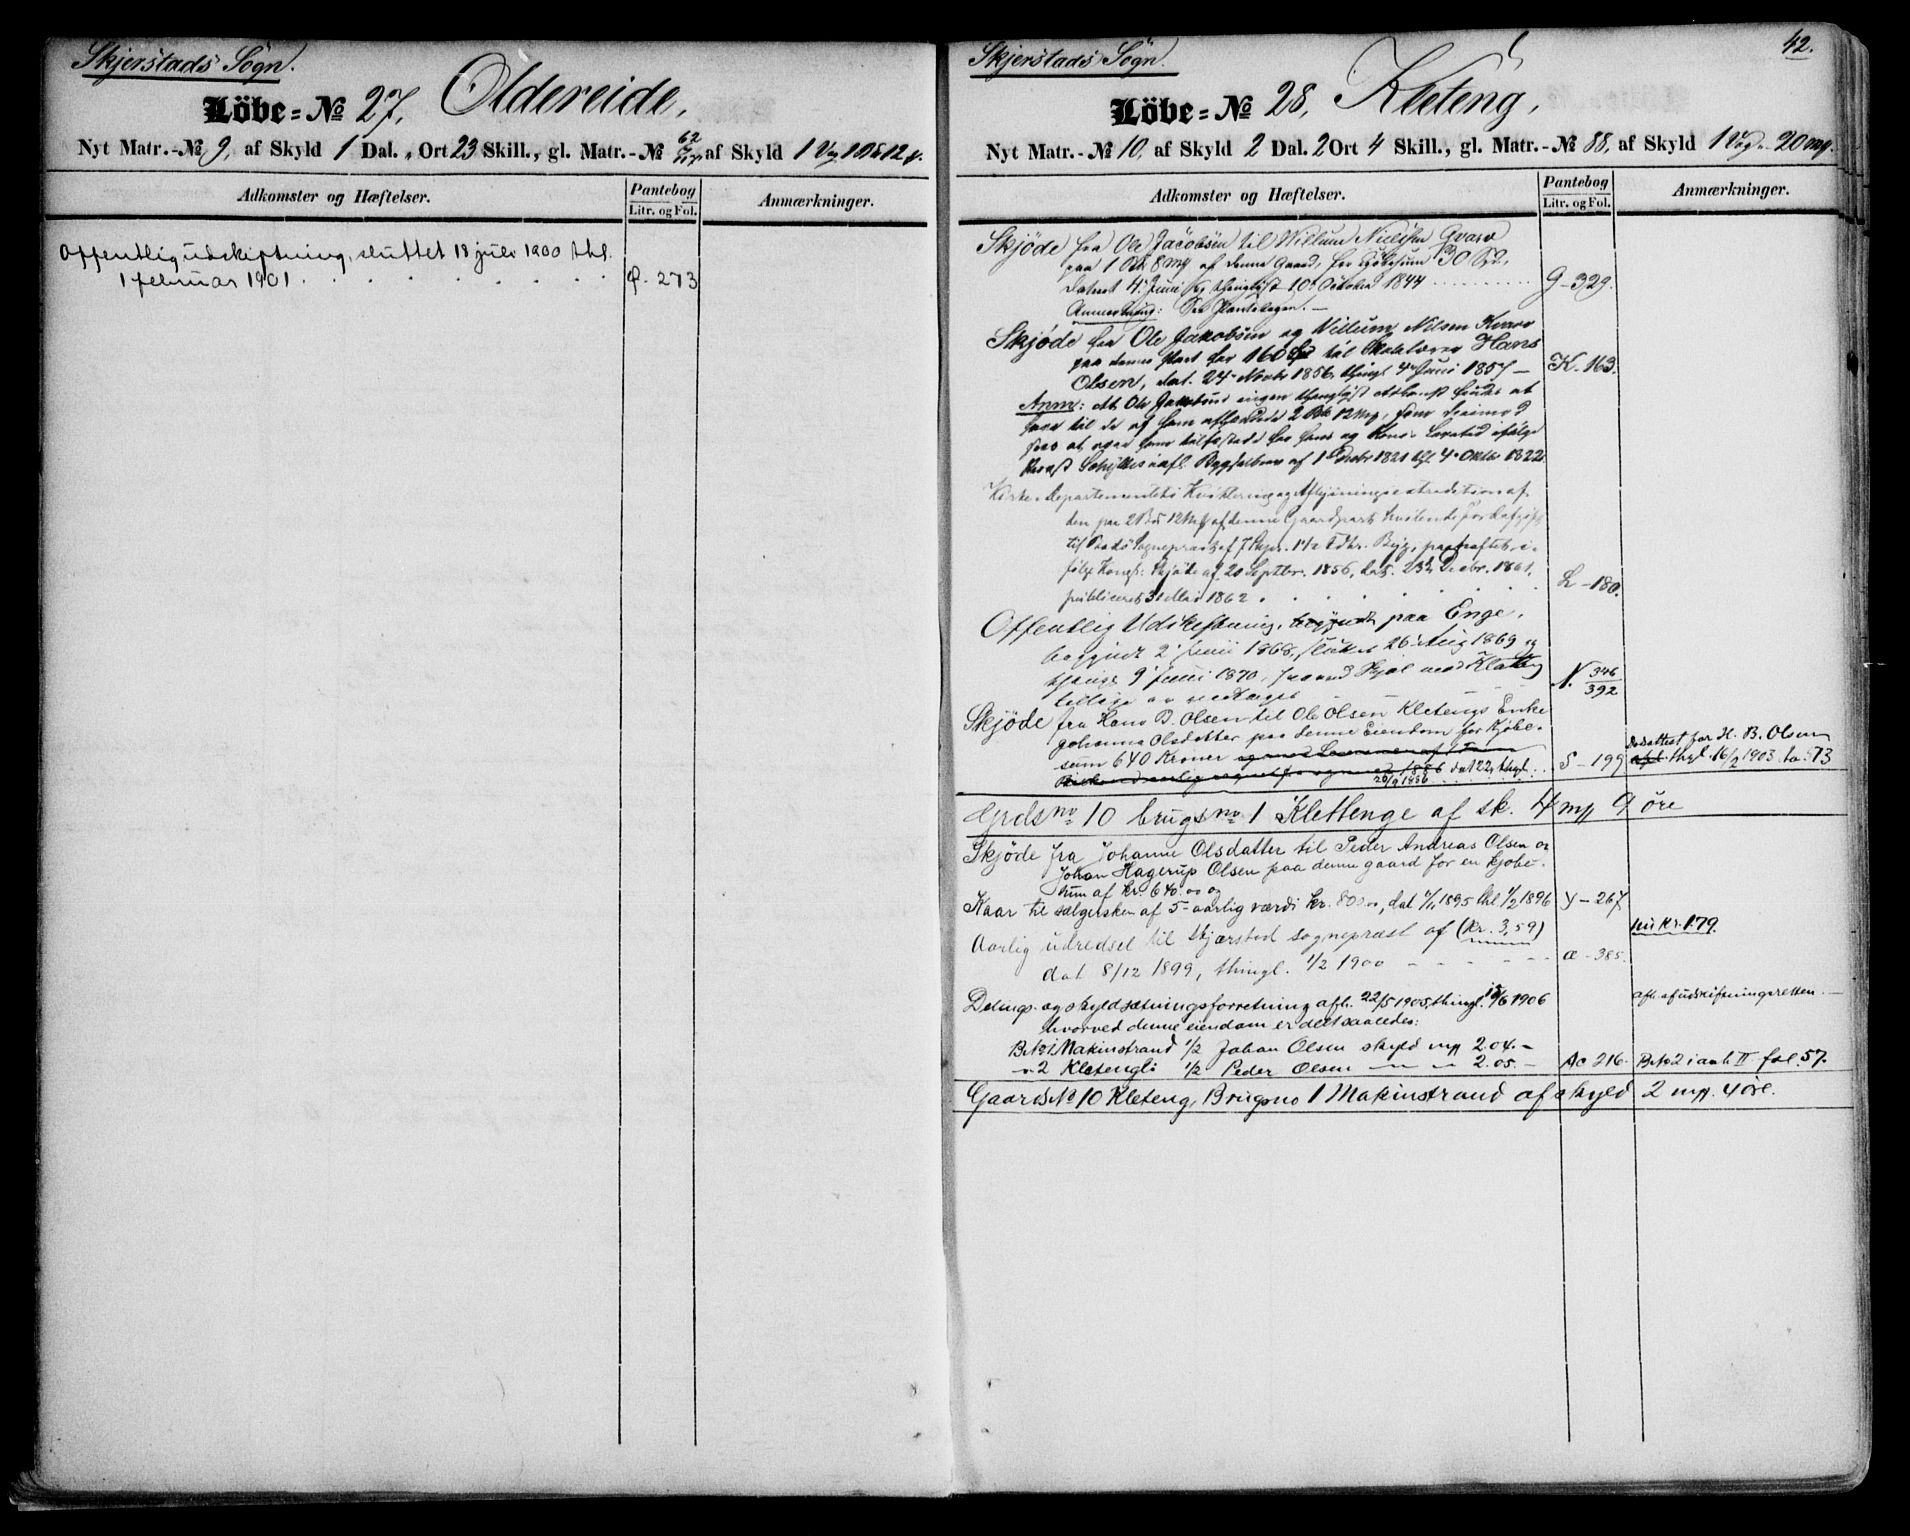 Skjerstads Sogn.
Löbe=No 27, Oldereide,
Nyt Matr.-No 9, af Skyld 1 Dal. „ Ort 23 Skill., gl. Matr.-No 62 af Skyld 1 Vog
Adkomster og Hæftelser.
Pantebog
Litr. og Fol.
Anmærkninger.
Offentlig udskiftning, sluttet 18 juli 1900 thl.
1 februar 1901 . . . . . . . . 273
42.
Skjerstads Sogn.
Löbe=No 28, Kleteng,
Nyt Matr.-No 10, af Skyld 2 Dal. 2 Ort 4 Skill., gl. Matr.-No 88, af Skyld 1 Vog „ 20 mk.
Adkomster og Hæftelser.
Pantebog
Litr. og Fol.
Anmærkninger.
Skjöde fra Ole Jacobsen til Willum Nielsen Qvarv
paa 1 Pd. 8 mk af denne Gaard, for Kjöbesum 30 Spd.
dateret 4. Juni og thinglyst 10. October 1844 . . . . . G - 329.
Anmærkning: See Pantebogen. —
Skjöde fra Ole Jakobsen og Villum Nilsen Kvarv
paa denne Part for 160 Spd til Skolelærer Hans
Olsen, dat. 24 Novbr 1856, thingl 4 Juni 1857 — K. 163.
Anm: At Ole Jakobsens ingen thinglyst Adkomst findes at
have til de af ham afhændede 2 Pd. 12 mk, som
at være ham tilfæstede for hans og Kones Levetid ifölge
Bygselbrev af 1 Decbr 1821 thl 4 Oktbr 1822
Kirke-Departementets Kvittering og Aflysningsextradition af
den paa 2 Pd 12 mk af denne Gaardpart hvilende Jordafgift
til Stedets Sognepræst af 7 Skpr. 1 1/2 Fdkr. Byg, paaheftet i-
fölge Kongl. Skjöde af 20 Septbr. 1856, dat. 23 Decbr. 1861,
publiceret 31 Mai 1862 . . . . . . L - 180.
Offentlig Udskiftning, begyndt paa Enge,
begyndt 2 Juni 1868, sluttet 26 Aug 1869 og
thingl 9 Juni 1870, N. 346/392
Skjöde fra Hans B. Olsen til Ole Olsen Kletengs Enke
Johanna Olsdatter paa denne Eiendom for Kjöbe-
sum 640 Kroner
dat 22, thgl. 20/9 1886 . . S - 199
Dødsattest for H. B. Olsen
thgl. 16/2 1903. 573
Grds no 10 brugs no 1 Klettenge af sk. 4 mk 9 øre
Skjøde fra Johanne Olsdatter til Peder Andreas Olsen og
Johan Hagerup Olsen paa denne gaard for en kjøbe-
sum af kr. 640.00 og
Kaar til sælgersken af 5-aarlig værdi kr. 800.00, dat 4/11 1895 thl 1/2 1896 Y - 267
Aarlig udredsel til Skjærstad sognepræst af (kr. 3,59)
nu kr. 1.79.
dat 8/12 1899, thingl. 1/2 1900 - - - - - - æ - 385.
Delings- og skyldsætningsforretning afh. 22/5 1905, thingl. 15/6 1906
afh. af udskiftningsretten. —
hvorved denne eiendom er delt saaledes:
B.No 1 Makinstrand 1/2 Johan Olsen skyld mk 2.04. —
„ 2 Kletengli 1/2 Peder Olsen — „ — „ 2.05. — Ac 216. B.No 2 i avh. II fol. 57.
Gaards No 10 Kleteng, Brugsno 1 Makinstrand af skyld 2 mk. 4 øre.